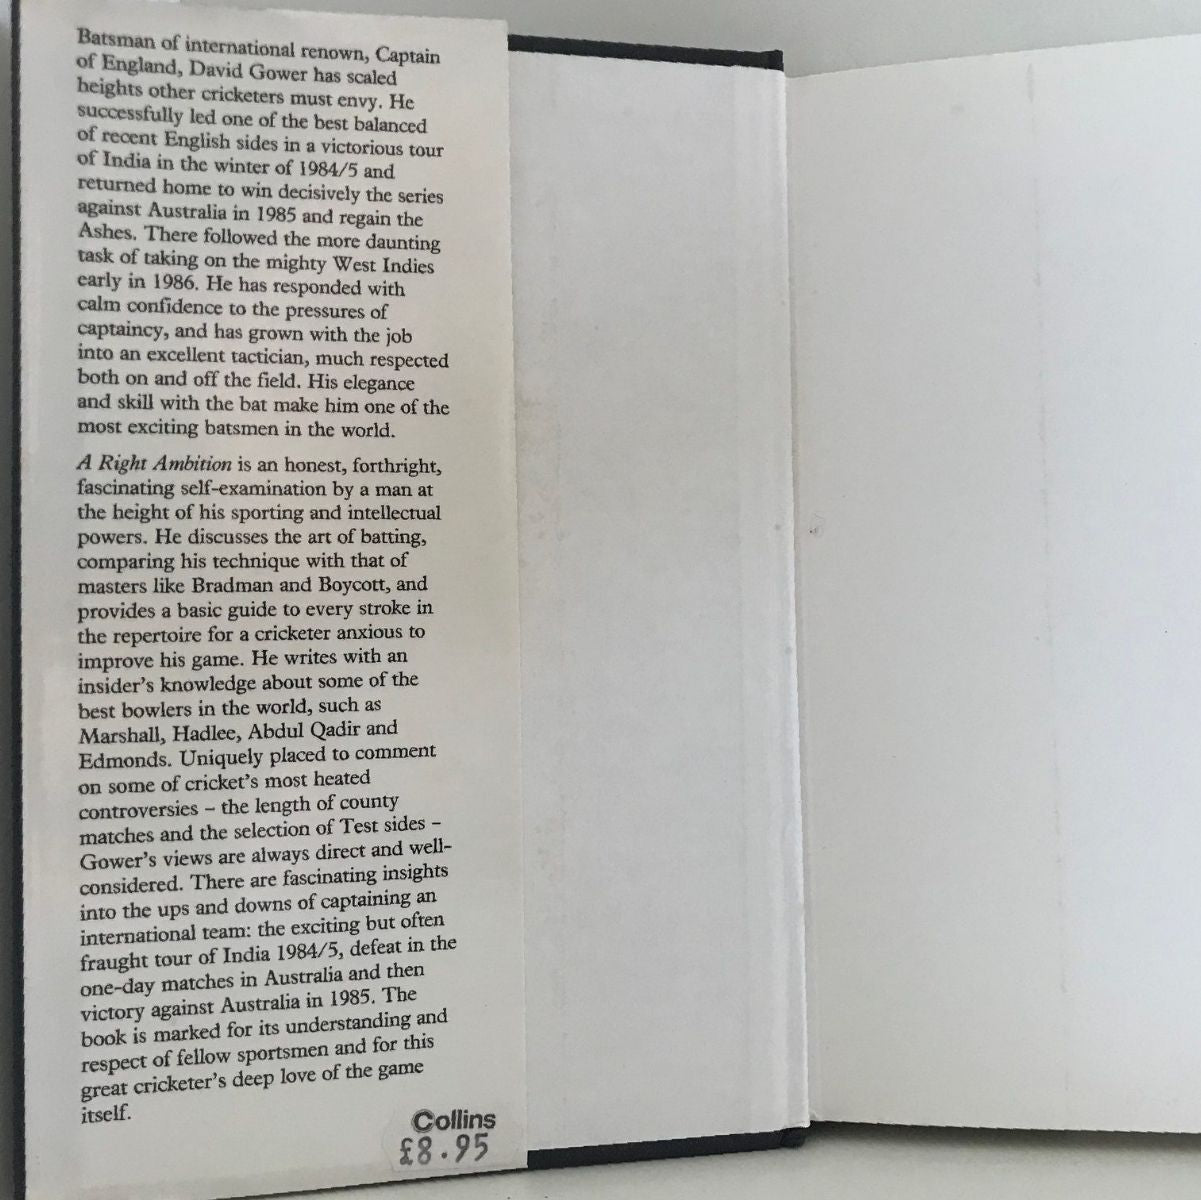 Batsman of international renown, Captain
of England, David Gower has scaled
heights other cricketers must envy. He
successfully led one of the best balanced
of recent English sides in a victorious tour
of India in the winter of 1984/5 and
returned home to win decisively the series
against Australia in 1985 and regain the
Ashes. There followed the more daunting
task of taking on the mighty West Indies
early in 1986. He has responded with
calm confidence to the pressures of
captaincy, and has grown with the job
into an excellent tactician, much respected
both on and off the field. His elegance
and skill with the bat make him one of the
most exciting batsmen in the world.
A Right Ambition is an honest, forthright,
fascinating self-examination by a man at
the height of his sporting and intellectual
powers. He discusses the art of batting,
comparing his technique with that of
masters like Bradman and Boycott, and
provides a basic guide to every stroke in
the repertoire for a cricketer anxious to
improve his game. He writes with an
insider's knowledge about some of the
best bowlers in the world, such as
Marshall, Hadlee, Abdul Qadir and
Edmonds. Uniquely placed to comment
on some of cricket's most heated
controversies – the length of county
matches and the selection of Test sides –
Gower's views are always direct and well-
considered. There are fascinating insights
into the ups and downs of captaining an
international team: the exciting but often
fraught tour of India 1984/5, defeat in the
one-day matches in Australia and then
victory against Australia in 1985. The
book is marked for its understanding and
respect of fellow sportsmen and for this
great cricketer's deep love of the game
itself.
Collins
£8.95